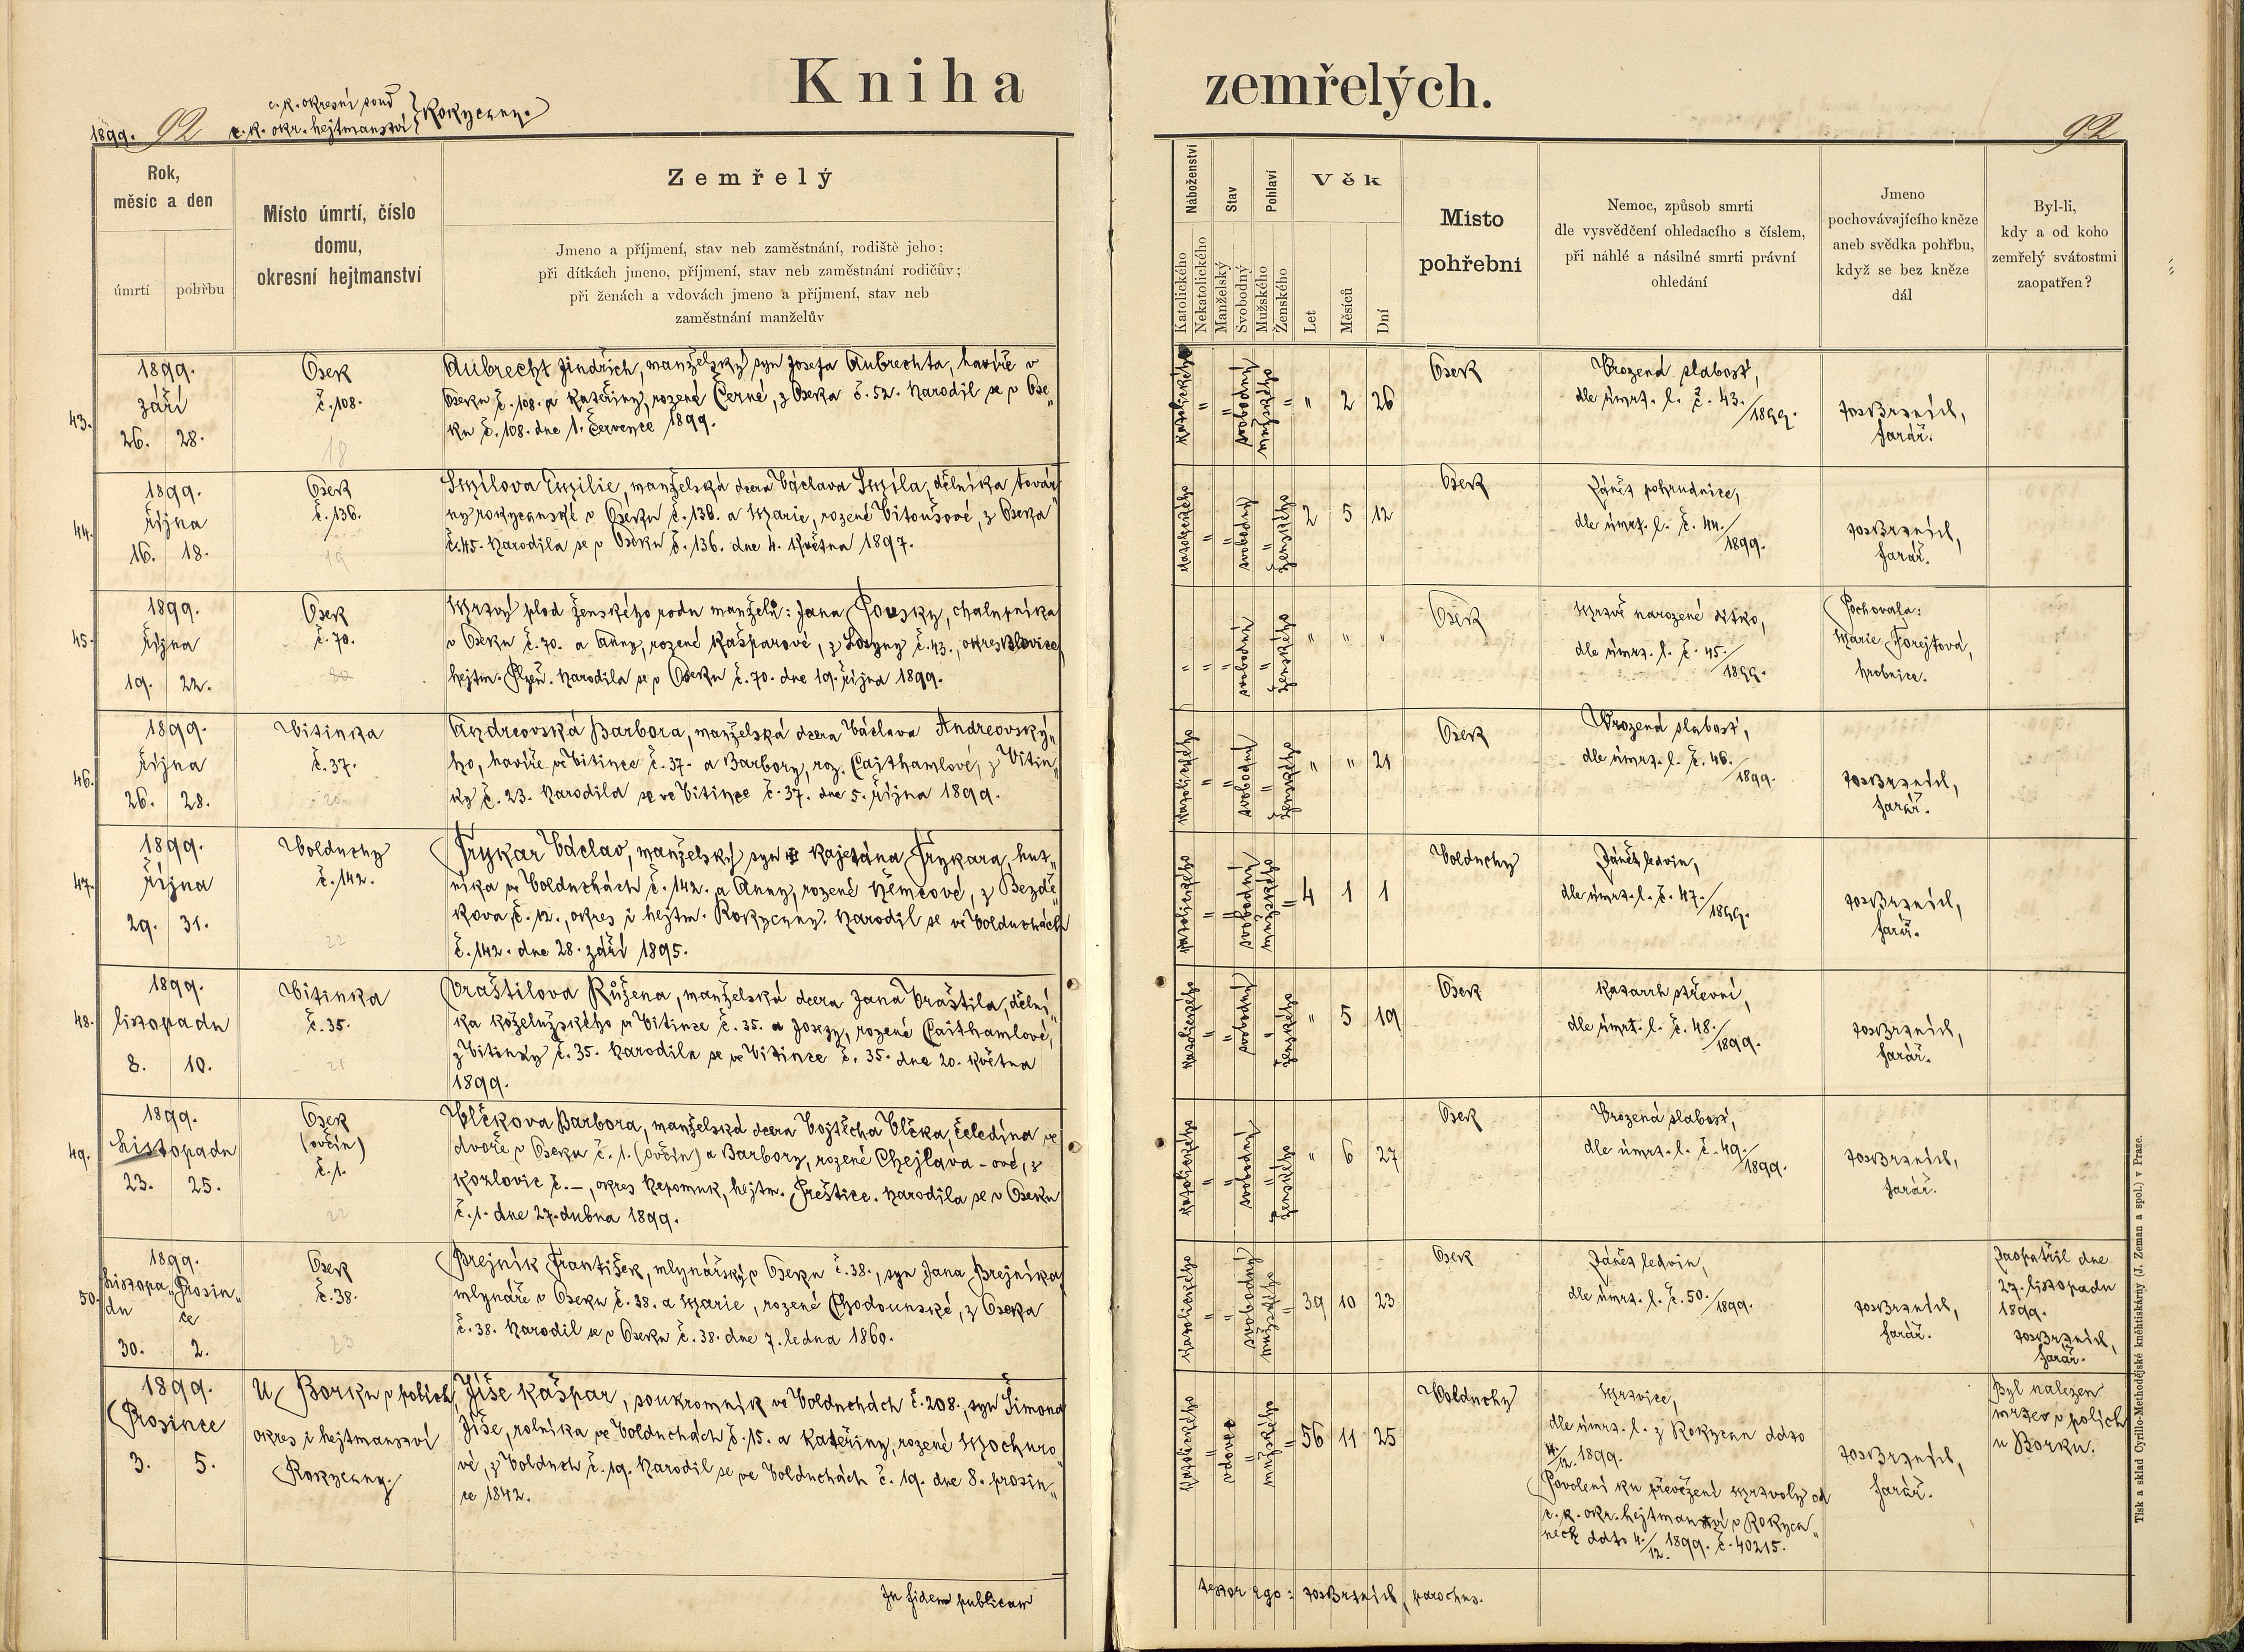 Kniha zemřelých.
1899. 92
c. k. okresní soud
c. k. okr. hejtmanství } Rokycany.
92
Rok,
měsíc a den
úmrtí
pohřbu
Místo úmrtí, číslo
domu,
okresní hejtmanství
Zemřelý
Jmeno a příjmení, stav neb zaměstnání, rodiště jeho;
při dítkách jmeno, příjmení, stav neb zaměstnání rodičův;
při ženách a vdovách jmeno a příjmení, stav neb
zaměstnání manželův
Náboženství
Katolického
Nekatolického
Stav
Manželský
Svobodný
Pohlaví
Mužského
Ženského
Věk
Let
Měsíců
Dní
Místo
pohřební
Nemoc, způsob smrti
dle vysvědčení ohledacího s číslem,
při náhlé a násilné smrti právní
ohledání
Jmeno
pochovávajícího kněze
aneb svědka pohřbu,
když se bez kněze
dál
Byl-li,
kdy a od koho
zemřelý svátostmi
zaopatřen?
43.
1899.
září
26. 28.
Osek
č. 108.
18
Aubrecht Jindřich, manželský syn Josefa Aubrechta, havíře v
Oseku č. 108. a Kateřiny, rozené Černé, z Oseka č. 52. Narodil se v Ose„
ku č. 108. dne 1. července 1899.
katolického " " svobodný mužského " " 2 26
Osek
Vrozená slabost,
dle úmrt. l. č. 43./1899.
Jos Brznich,
farář.
44.
1899.
října
16. 18.
Osek
č. 136.
19
Smílova Emilie, manželská dcera Václava Smíla, dělníka továr„
ny rokycanské v Oseku č. 136. a Marie, rozené Vitoušové, z Oseka
č. 45. Narodila se v Oseku č. 136. dne 4. května 1897.
katolického " " svobodný " ženského 2 5 12
Osek
Zánět pohrudnice,
dle úmrt. l. č. 44./1899.
Jos Brznich,
farář.
45.
1899.
října
19. 22.
Osek
č. 70.
20
Mrtvý plod ženského rodu manželů: Jana Pousky, chalupníka
v Oseku č. 70. a Anny, rozené Kašparové, z Losyny č. 43., okres Blovice,
hejtm. Plzeň. Narodila se v Oseku č. 70. dne 19. října 1899.
" " " svobodný " ženského " " "
Osek
Mrtvě narozené dítko,
dle úmrt. l. č. 45./1899.
Pochovala:
Marie Forejtová,
hrobnice.
46.
1899.
října
26. 28.
Vitinka
č. 37.
20
Andreovská Barbora, manželská dcera Václava Andreovský„
ho, havíře ve Vitince č. 37. a Barbory, roz. Cajthamlové, z Vitin„
ky č. 23. Narodila se ve Vitince č. 37. dne 5. října 1899.
katolického " " svobodný " ženského " " 21
Osek
Vrozená slabost,
dle úmrt. l. č. 46./1899.
Jos Brznich,
farář.
47.
1899.
října
29. 31.
Volduchy
č. 142.
22
Frykar Václav, manželský syn Kajetána Frykara, hut„
níka ve Volduchách č. 142. a Anny, rozené Němcové, z Bezdě„
kova č. 12., okres i hejtm. Rokycany. Narodil se ve Volduchách
č. 142. dne 28. září 1895.
katolického " " svobodný mužského " 4 1 1
Volduchy
Zánět ledvin,
dle úmrt. l. č. 47./1899.
Jos Brznich,
farář.
48.
1899.
listopadu
8. 10.
Vitinka
č. 35.
21
Vraštilova Růžena, manželská dcera Jana Vraštila, dělní„
ka koželužského ve Vitince č. 35. a Josefy, rozené Caithamlové,
z Vitinky č. 35. Narodila se ve Vitince č. 35. dne 20. května
1899.
katolického " " svobodný " ženského " 5 19
Osek
Katarrh střevní,
dle úmrt. l. č. 48./1899.
Jos Brznich,
farář.
49.
1899.
listopadu
23. 25.
Osek
(ovčín)
č. 1.
22
Vlčkova Barbora, manželská dcera Vojtěcha Vlčka, čeledína ve
dvoře v Oseku č. 1. (ovčín) a Barbory, rozené Chejlava-ové, z
Kozlovic č. –, okres Nepomuk, hejtm. Přeštice. Narodila se v Oseku
č. 1. dne 27. dubna 1899.
katolického " " svobodný " ženského " 6 27
Osek
Vrozená slabost,
dle úmrt. l. č. 49./1899.
Jos Brznich,
farář.
50.
1899.
listopa„ Prosin„
du ce
30. 2.
Osek
č. 38.
23
Brejník František, mlynářský v Oseku č. 38., syn Jana Brejníka,
mlynáře v Oseku č. 38. a Marie, rozené Chodounské, z Oseka
č. 38. Narodil se v Oseku č. 38. dne 7. ledna 1860.
katolického " " svobodný mužského " 39 10 23
Osek
Zánět ledvin,
dle úmrt. l. č. 50./1899.
Jos Brznich,
farář.
Zaopatřil dne
27. listopadu
1899.
Jos Brznich,
farář.
1899.
Prosince
3. 5.
U Borku v polích,
okres i hejtmanství
Rokycany
Jíše Kašpar, soukromník ve Volduchách č. 208., syn Šimona
Jíše, rolníka ve Volduchách č. 15. a Kateřiny, rozené Mochuro„
vé, z Volduch č. 19. Narodil se ve Volduchách č. 19. dne 8. prosin„
ce 1842.
katolického " vdovec mužského " 56 11 25
Volduchy
Mrtvice,
dle úmrt. l. z Rokycan ddto
4./12. 1899.
Povolení ku převežení mrtvoly od
c. k. okr. hejtmanství v Rokyca„
nech ddto 4./12. 1899. č. 40215.
Jos Brznich,
farář.
Byl nalezen
mrtev v polích
u Borku.
In fidem publicam
testor ego: Jos Brznich, parochus.
Tisk a sklad Cyrillo-Methodějské kněhtiskárny (J. Zeman a spol.) v Praze.